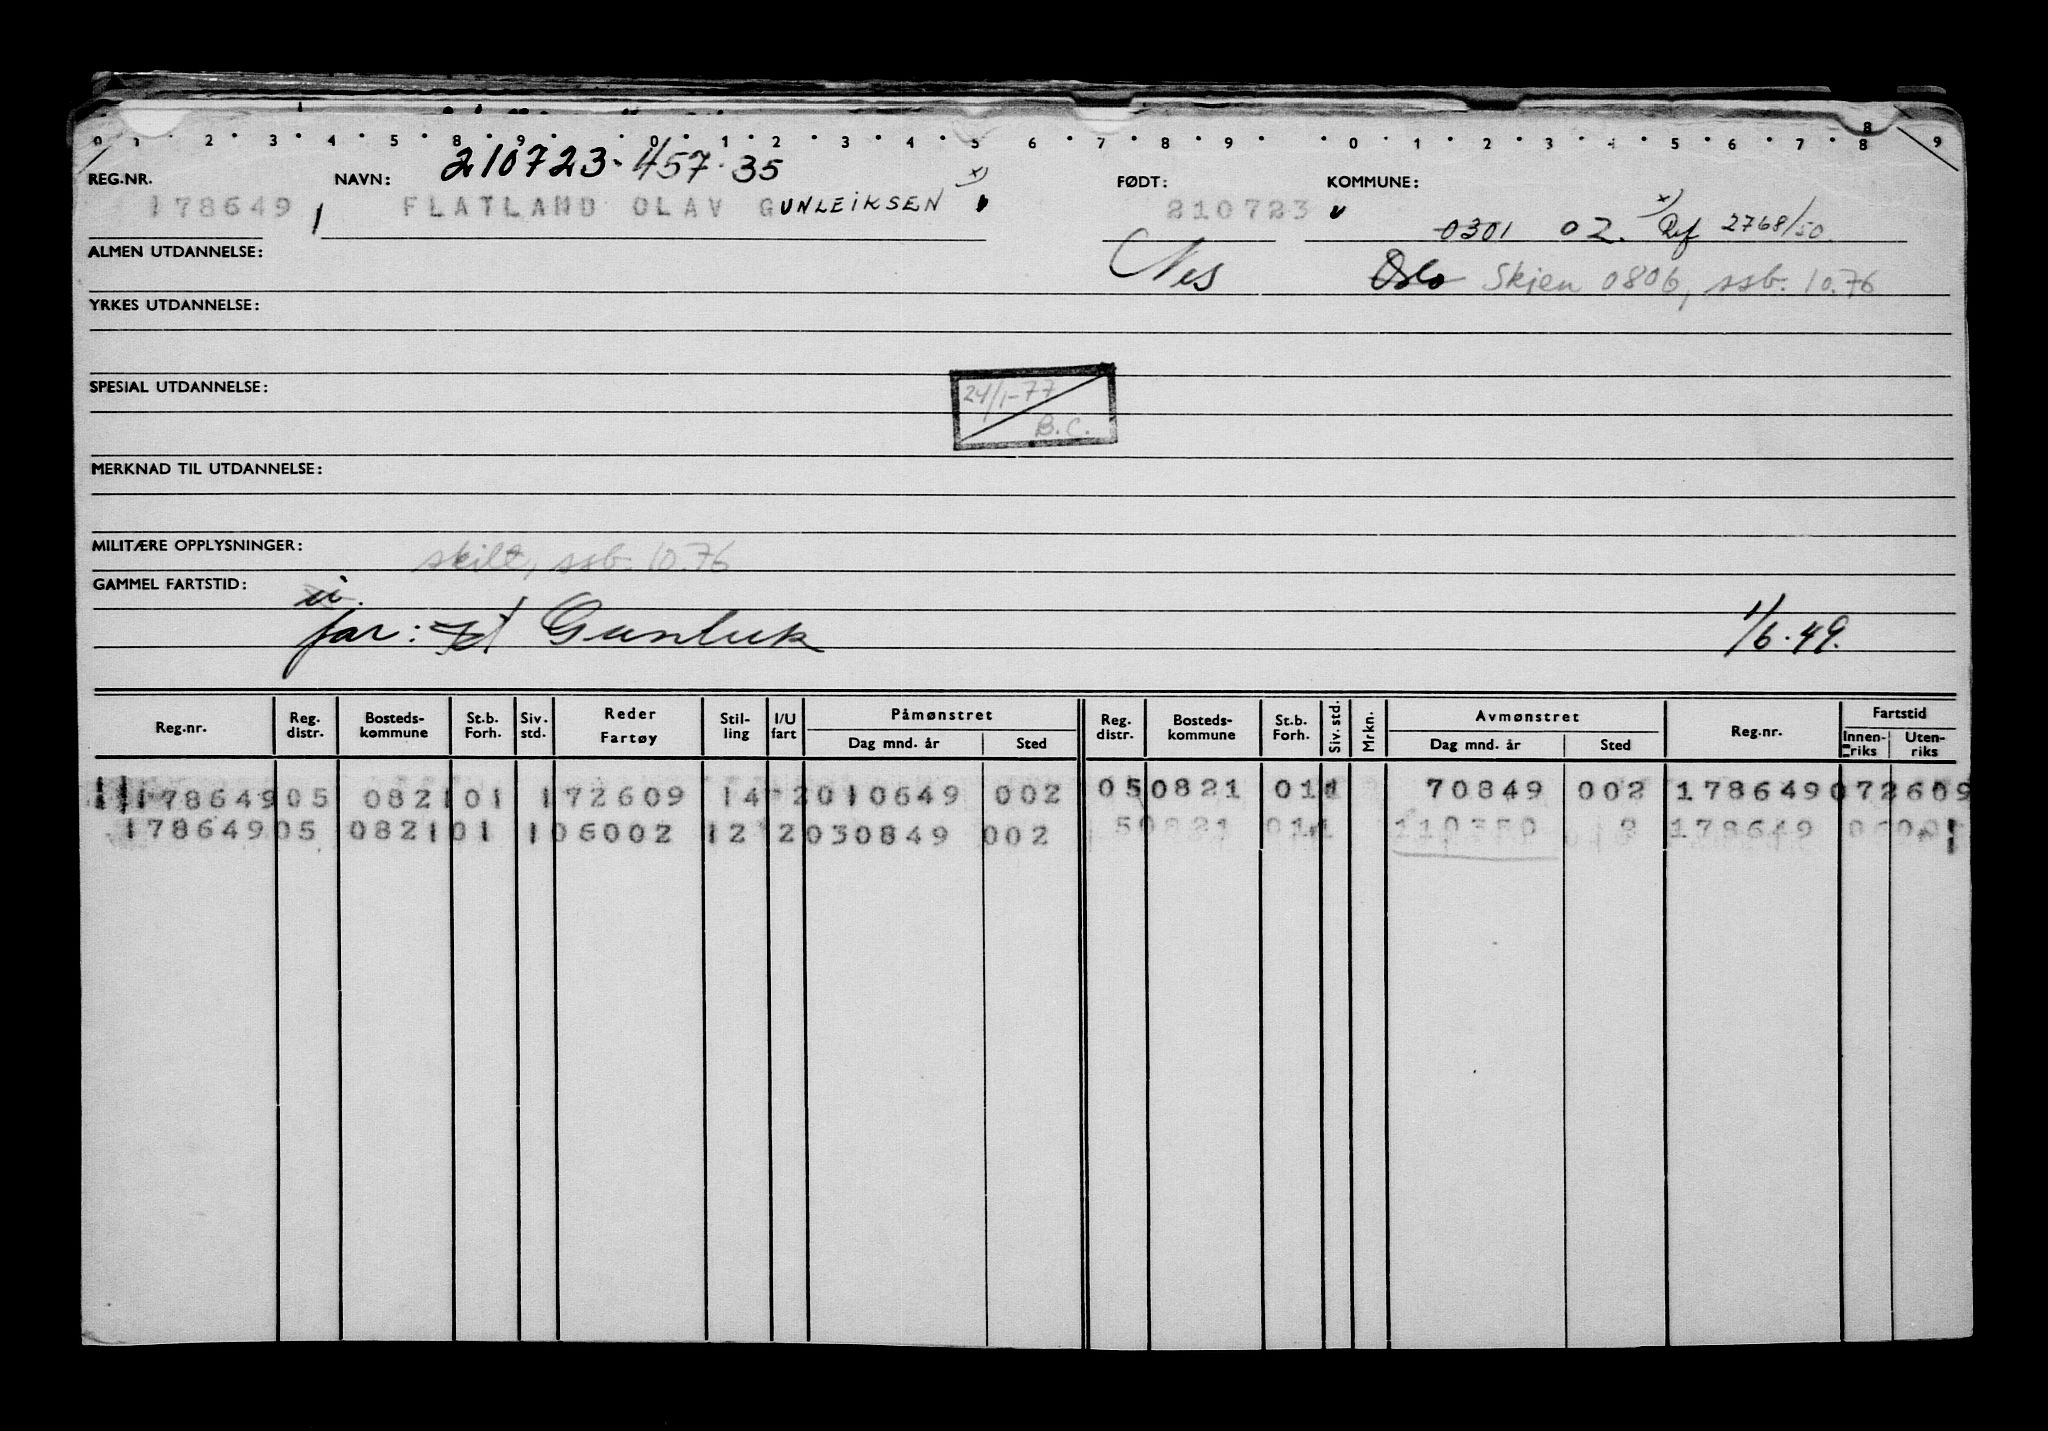 0 1 2 3 4 5 8 9 0 1 2 3 4 5 6 7 8 9 0 1 2 3 4 5 6 7 8 9
210723-457-35
REG.NR. NAVN: x) FØDT: KOMMUNE:
178649 1 FLATLAND OLAV GUNLEIKSEN 210723 0301 02. x) Ref 2768/50.
ALMEN UTDANNELSE: Nes Oslo Skien 0806, ssb. 10.76
YRKES UTDANNELSE:
SPESIAL UTDANNELSE: 24/1-77
B.C.
MERKNAD TIL UTDANNELSE:
MILITÆRE OPPLYSNINGER: skilt, ssb. 10.76
GAMMEL FARTSTID:
far: Gunluk 1/6.49.
Reg.nr. Reg. distr. Bosteds- kommune St.b. Forh. Siv. std. Reder Fartøy Stil- ling I/U fart Påmønstret Dag mnd. år Sted Reg. distr. Bosteds- kommune St.b. Forh. Siv. std. Mrkn. Avmønstret Dag mnd. år Sted Reg.nr. Fartstid Innen- riks Uten- riks
178649 05 0821 01 1 72609 14 2 010649 002 05 0821 01 1 70849 002 178649 072609
178649 05 0821 01 1 06002 12 2 030849 002 5 0821 01 1 110350 178649